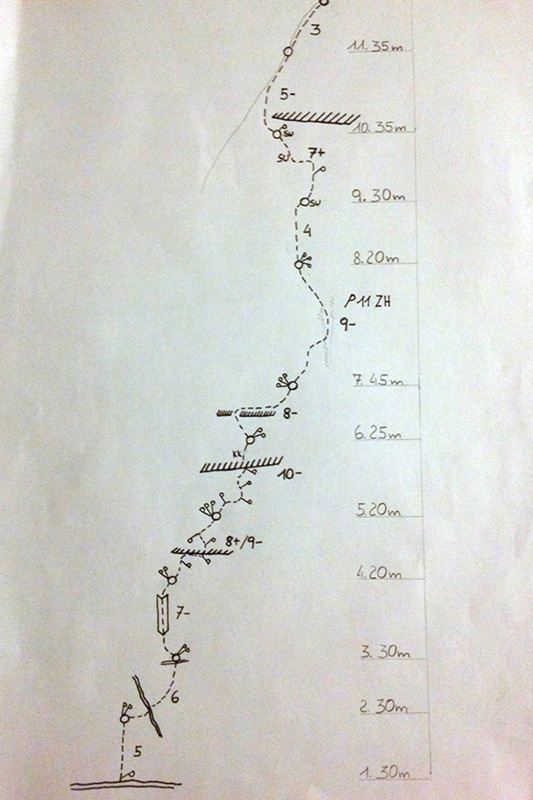 3
11. 35m
5-
10. 35m
SU
SU
7+
9. 30m
SU
4
8. 20m
P 11 ZH
9-
7. 45m
8-
6. 25m
KK
10-
5. 20m
8+/9-
4. 20m
7-
3. 30m
6
2. 30m
5
1. 30m